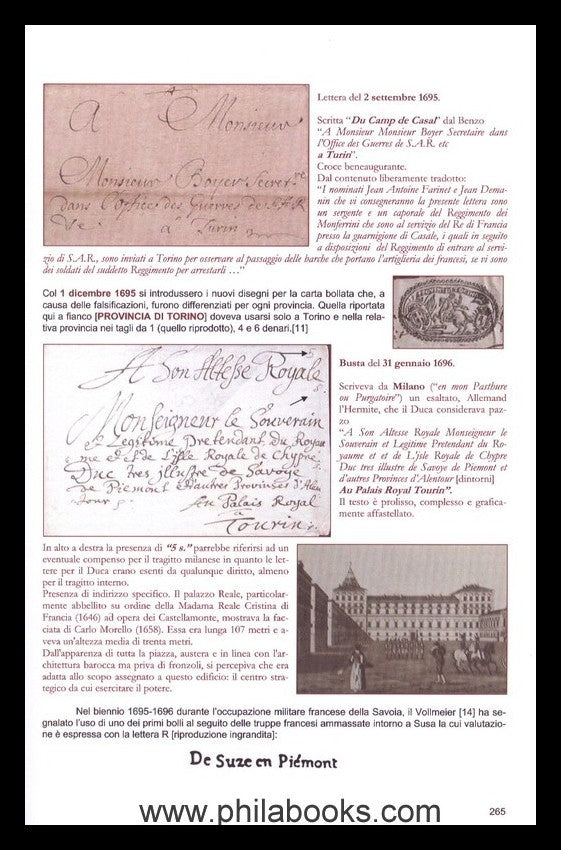 A Monsieur
Monsieur Boyer Secret.re
dans l'Office des Guerres de S.A.R
a Turin
Lettera del 2 settembre 1695.
Scritta “Du Camp de Casal” dal Benzo
“A Monsieur Monsieur Boyer Secretaire dans
l'Office des Guerres de S.A.R. etc
a Turin”.
Croce beneaugurante.
Dal contenuto liberamente tradotto:
“I nominati Jean Antoine Farinet e Jean Dema-
nin che si consegneranno la presente lettera sono
un sergente e un caporale del Reggimento dei
Monferrini che sono al servizio del Re di Francia
presso la guarnigione di Casale, i quali in seguito
a disposizioni del Reggimento di entrare al servi-
zio di S.A.R., sono inviati a Torino per osservare al passaggio delle barche che portano l'artiglieria dei francesi, se vi sono
dei soldati del suddetto Reggimento per arrestarli …”
Col 1 dicembre 1695 si introdussero i nuovi disegni per la carta bollata che, a
causa delle falsificazioni, furono differenziati per ogni provincia. Quella riportata
qui a fianco [PROVINCIA DI TORINO] doveva usarsi solo a Torino e nella rela-
tiva provincia nei tagli da 1 (quello riprodotto), 4 e 6 denari.[11]
A Son Altesse Royale
5 s.
Monseigneur le Souverain
et Legitime Pretendant du Royau
me et de L'isle Royale de Chypre
Duc tres illustre de Savoye
de Piemont et d'autres Provinces d'Alen
tour
Au Palais Royal
à
Tourin
Busta del 31 gennaio 1696.
Scriveva da Milano (“en mon Pasthure
ou Purgatoire”) un esaltato, Allemand
l'Hermite, che il Duca considerava paz-
zo
“A Son Altesse Royale Monseigneur le
Souverain et Legitime Pretendant du Ro-
yaume et et de L'jsle Royale de Chypre
Duc tres illustre de Savoye de Piemont et
d'autres Provinces d'Alentour [dintorni]
Au Palais Royal Tourin”.
Il testo è prolisso, complesso e grafica-
mente affastellato.
In alto a destra la presenza di “5 s.” parrebbe riferirsi ad un
eventuale compenso per il tragitto milanese in quanto le let-
tere per il Duca erano esenti da qualunque diritto, almeno
per il tragitto interno.
Presenza di indirizzo specifico. Il palazzo Reale, particolar-
mente abbellito su ordine della Madama Reale Cristina di
Francia (1646) ad opera dei Castellamonte, mostrava la fac-
ciata di Carlo Morello (1658). Essa era lunga 107 metri e a-
veva un'altezza media di trenta metri.
Dall'apparenza di tutta la piazza, austera e in linea con l'ar-
chitettura barocca ma priva di fronzoli, si percepiva che era
adatta allo scopo assegnato a questo edificio: il centro stra-
tegico da cui esercitare il potere.
Nel biennio 1695-1696 durante l'occupazione militare francese della Savoia, il Vollmeier [14] ha se-
gnalato l'uso di uno dei primi bolli al seguito delle truppe francesi ammassate intorno a Susa la cui valutazio-
ne è espressa con la lettera R [riproduzione ingrandita]:
De Suze en Piémont
www.philabooks.com
265